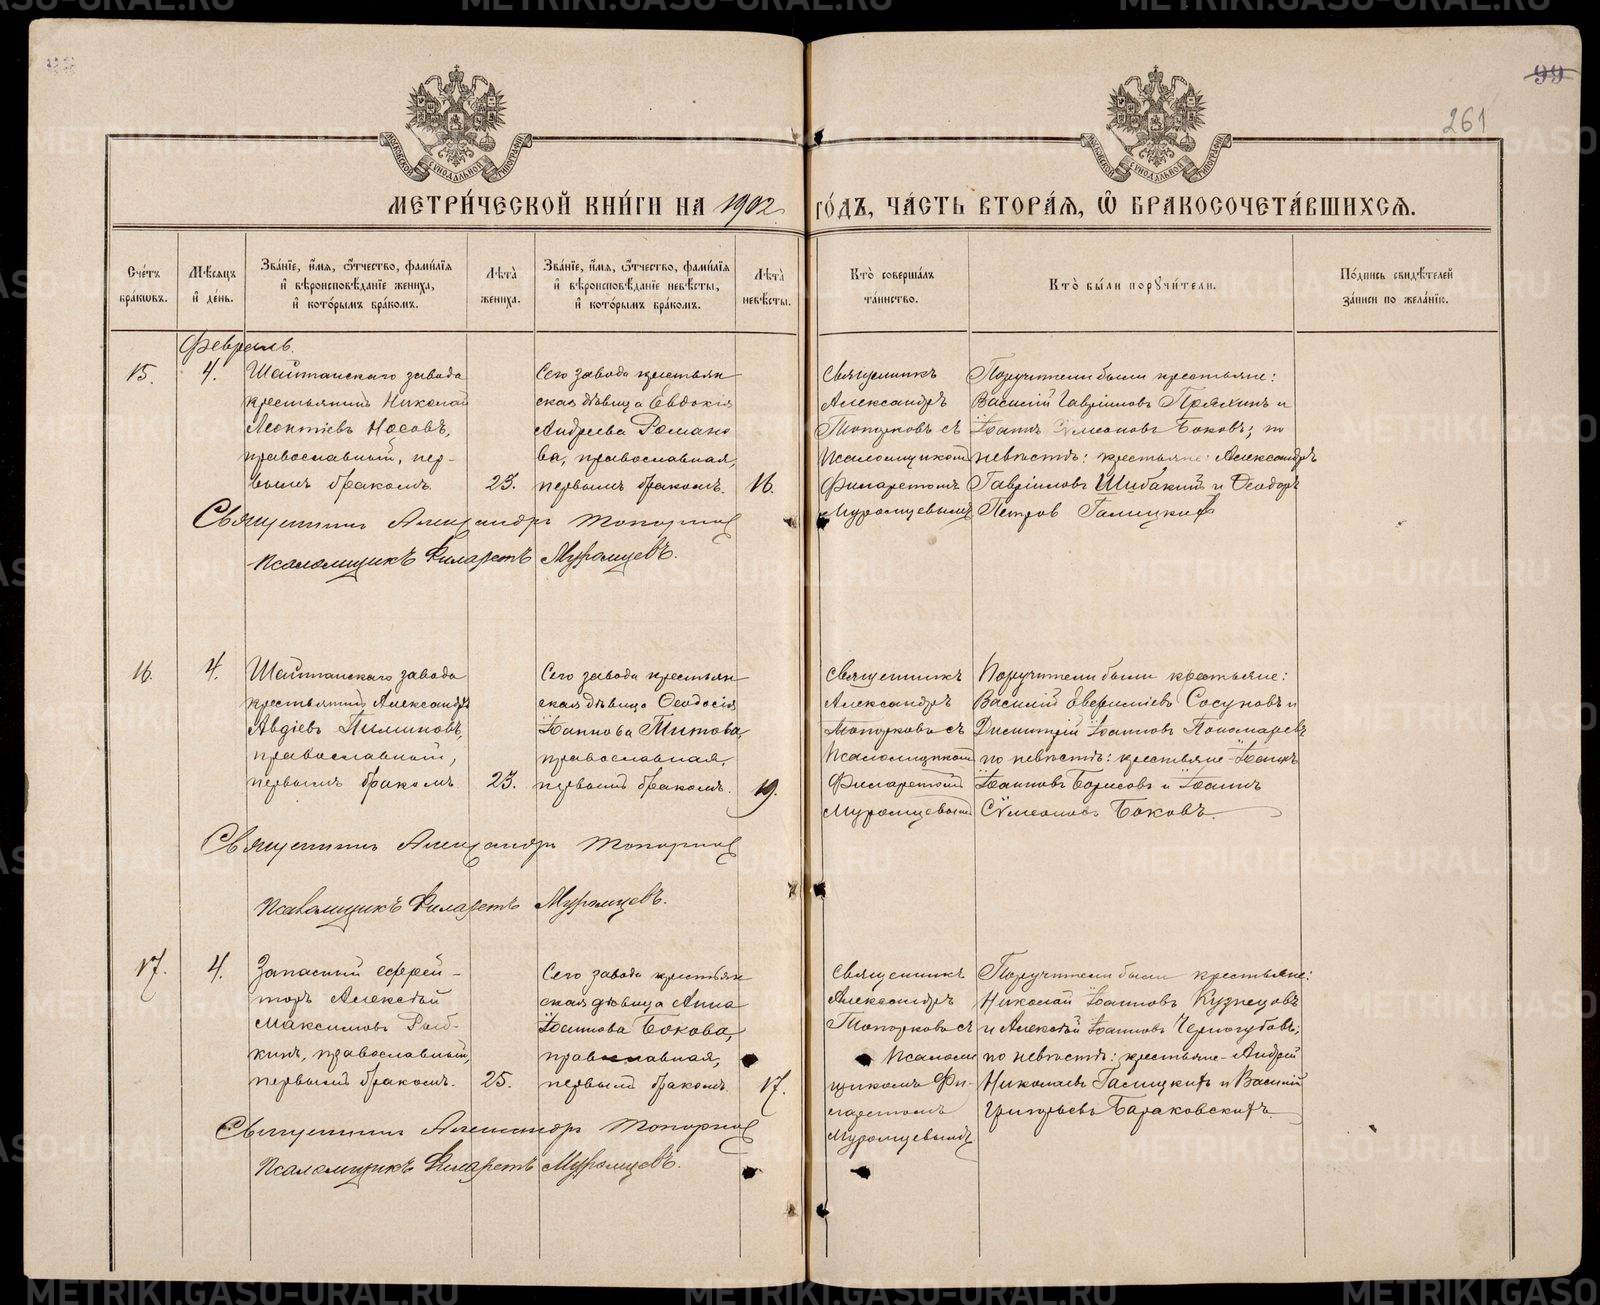 99
261
МЕТРИ́ЧЕСКОЙ КНИ́ГИ НА 1902 ГО́ДЪ, ЧА́СТЬ ВТОРА́Я, Ѡ҆ БРАКОСОЧЕТА́ВШИХСЯ.
Сче́тъ бра́ковъ.
Мѣ́сяцъ и҆ де́нь.
Зва́нїе, и҆́мя, ѻ҆́тчество, фами́лїя и҆ вѣроисповѣ́данїе жениха, и҆ кото́рымъ бра́комъ.
Лѣ́та̀ жениха.
Зва́нїе, и҆́мя, ѻ҆́тчество, фами́лїя и҆ вѣроисповѣ́данїе невѣ́сты, и҆ кото́рымъ бра́комъ.
Лѣ́та̀ невѣ́сты.
Кто̀ соверша́лъ та́инство.
Кто̀ бы́ли порꙋчи́тели.
По́дпись свидѣ́телей за́писи по жела́нїю.
Февраль.
15.
4.
Шайтанскаго завода
крестьянинъ Николай
Леонтіевъ Носовъ,
православный, пер-
вымъ бракомъ.
23.
Сего завода крестьян
ская дѣвица Евдокія
Андреева Романо
ва, православная,
первымъ бракомъ.
16.
Священникъ
Александръ
Топорковъ съ
Псаломщикомъ
Филаретомъ
Муромцевымъ
Поручители были крестьяне:
Василій Гавріиловъ Пряхинъ и
Іоаннъ Сѵмеоновъ Боковъ; по
невѣстѣ: крестьяне: Александръ
Гавріиловъ Шибакинъ и Ѳеодоръ
Петровъ Галицкихъ
Священникъ Александръ Топорковъ
Псаломщикъ Филаретъ Муромцевъ.
16.
4.
Шайтанскаго завода
крестьянинъ Александръ
Авдіевъ Пилиповъ,
православный,
первымъ бракомъ
23.
Сего завода крестьян
ская дѣвица Ѳеодосія
Іоаннова Титова,
православная,
первымъ бракомъ.
19.
Священникъ
Александръ
Топорковъ съ
Псаломщикомъ
Филаретомъ
Муромцевымъ
Поручители были крестьяне:
Василій Аверкіевъ Сосуновъ и
Димитрій Іоанновъ Пономаревъ
по невѣстѣ: крестьяне Іоаннъ
Іоанновъ Борисовъ и Іоаннъ
Сѵмеоновъ Боковъ.
Священникъ Александръ Топорковъ
Псаломщикъ Филаретъ Муромцевъ.
17.
4.
Запасный ефрей-
торъ Алексѣй
Максимовъ Рыб-
кинъ, православный,
первымъ бракомъ.
25.
Сего завода крестьян
ская дѣвица Анна
Іоаннова Бокова,
православная,
первымъ бракомъ.
17.
Священникъ
Александръ
Топорковъ съ
Псалом
щикомъ Фи-
ларетомъ
Муромцевымъ
Поручители были крестьяне:
Николай Іоанновъ Кузнецовъ
и Алексѣй Іоанновъ Черногубовъ;
по невѣстѣ: крестьяне - Андрей
Николаевъ Галицкихъ и Василій
Григорьевъ Бараковскихъ
Священникъ Александръ Топорковъ
Псаломщикъ Филаретъ Муромцевъ.
METRIKI.GASO-URAL.RU